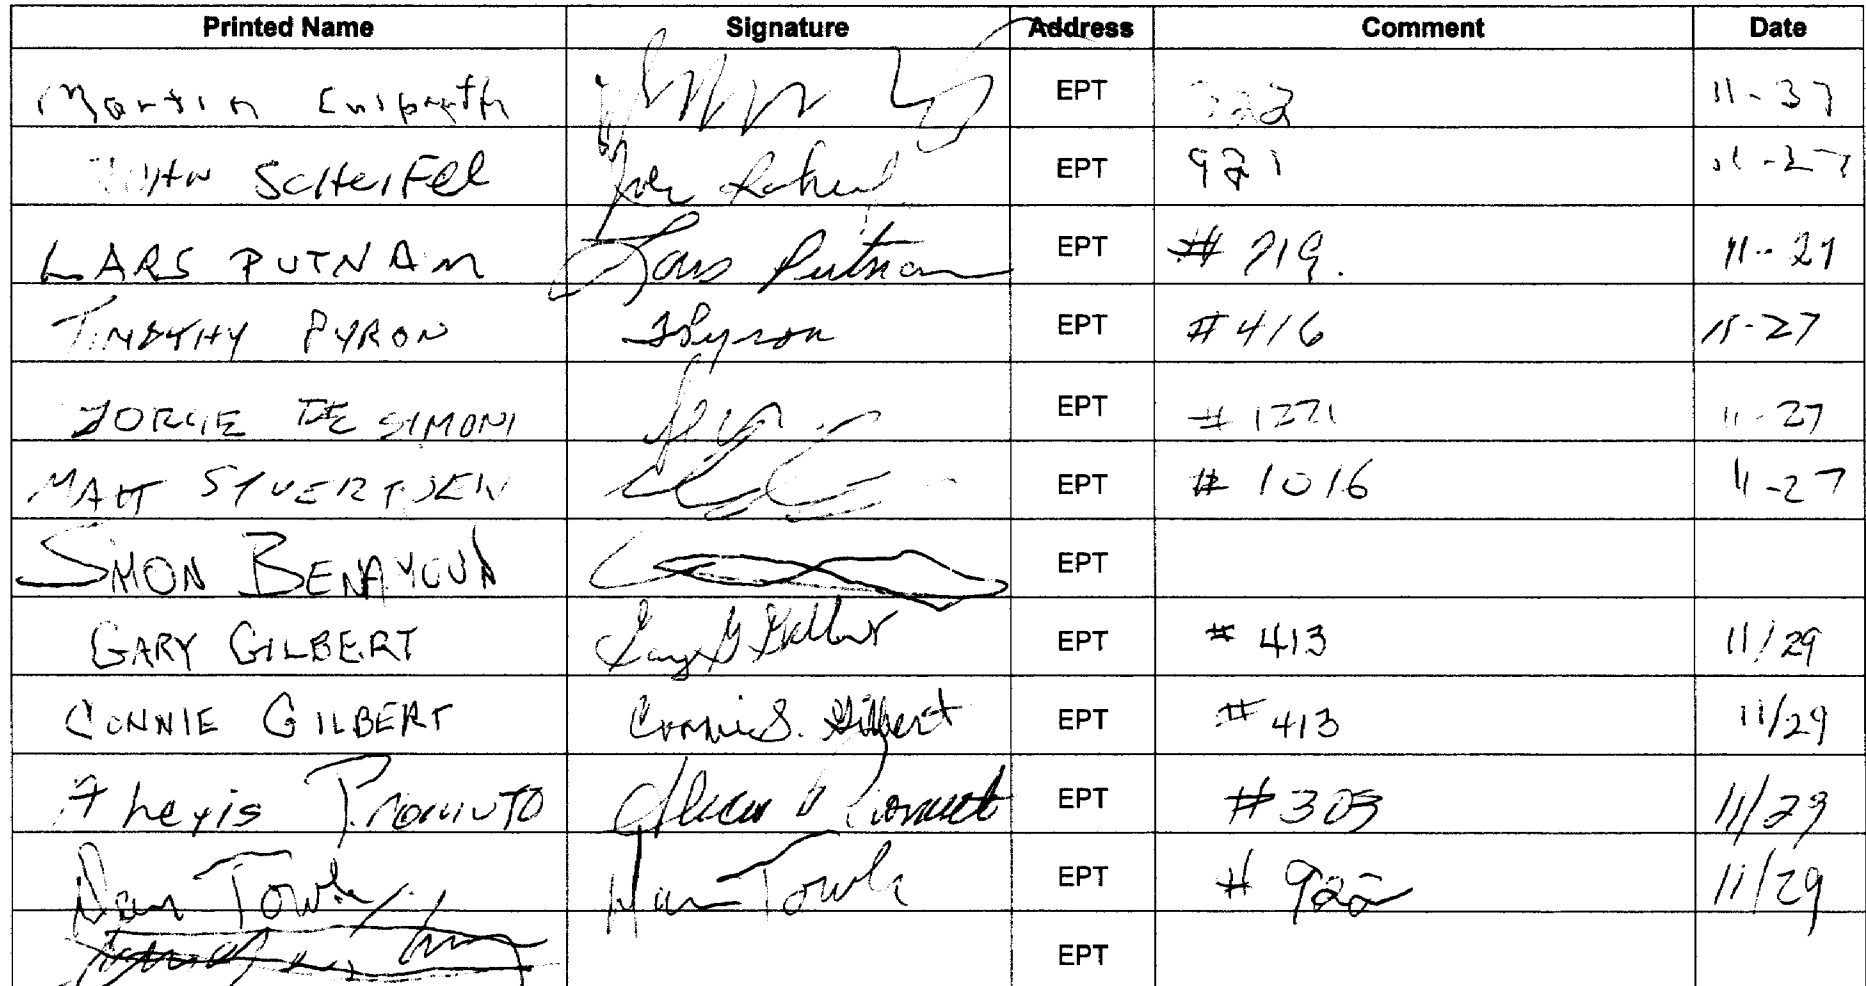 Printed Name Signature Address Comment Date
Martin EPT 11-27
John SCHEIFEL EPT 921 11-27
LARS PUTNAM Lars Putnam EPT # 719. 11-27
TIMOTHY PYRON TPyron EPT #416 11-27
JORGE DE SIMONI EPT #1221 11-27
MATT SYVERTSEN EPT #1016 11-27
SIMON BENAMOUN EPT
GARY GILBERT Gary G Gilbert EPT #413 11/29
CONNIE GILBERT Connie S. Gilbert EPT #413 11/29
EPT #303 11/29
Dan Towle Dan Towle EPT #922 11/29
EPT